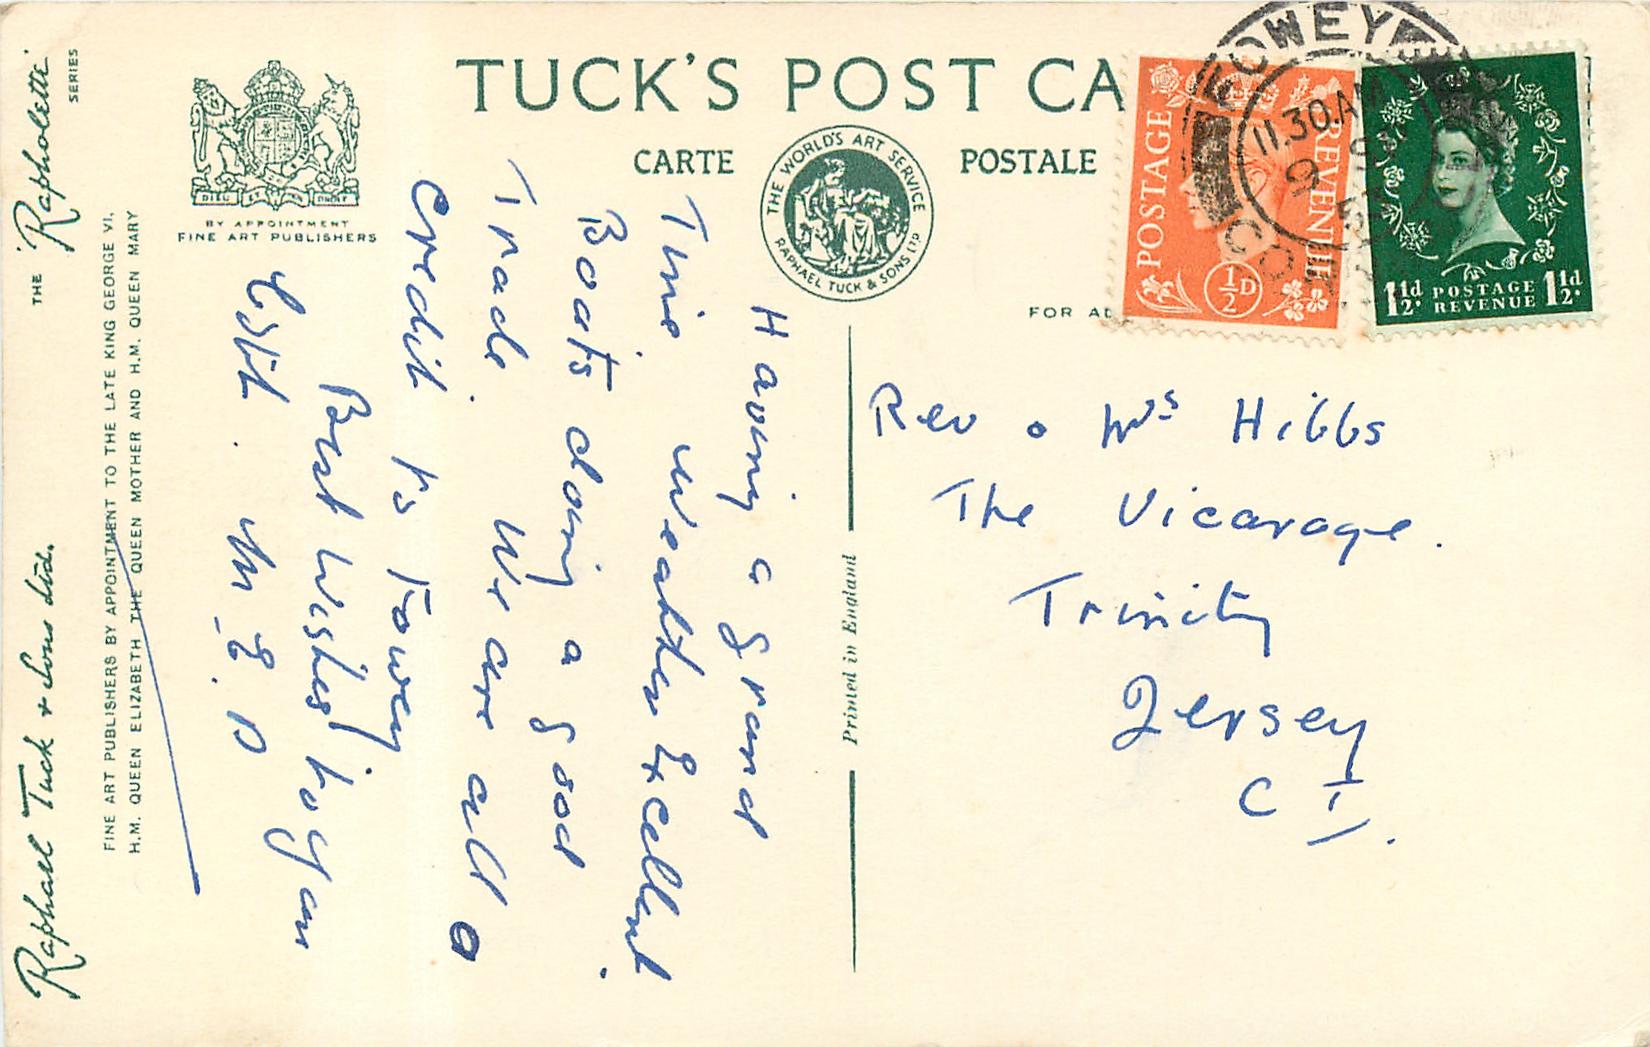 THE 'Rapholette' SERIES
Raphael Tuck & Sons Ltd.
FINE ART PUBLISHERS BY APPOINTMENT TO THE LATE KING GEORGE VI,
H.M. QUEEN ELIZABETH THE QUEEN MOTHER AND H.M. QUEEN MARY
DIEU ET MON DROIT
BY APPOINTMENT
FINE ART PUBLISHERS
TUCK'S POST CA
CARTE POSTALE
THE WORLD'S ART SERVICE
RAPHAEL TUCK & SONS LTD
FOR AD
Printed in England
POSTAGE REVENUE
½D
1½d. POSTAGE REVENUE 1½d.
FOWEY
11.30 AM
9
CO
Having a grand
Time Weather Excellent
Boats doing a good
Trade We are all a
credit to Fowey
Best Wishes to you
M.E.D
Rev & Mrs Hibbs
The Vicarage.
Trinity
Jersey
C I.